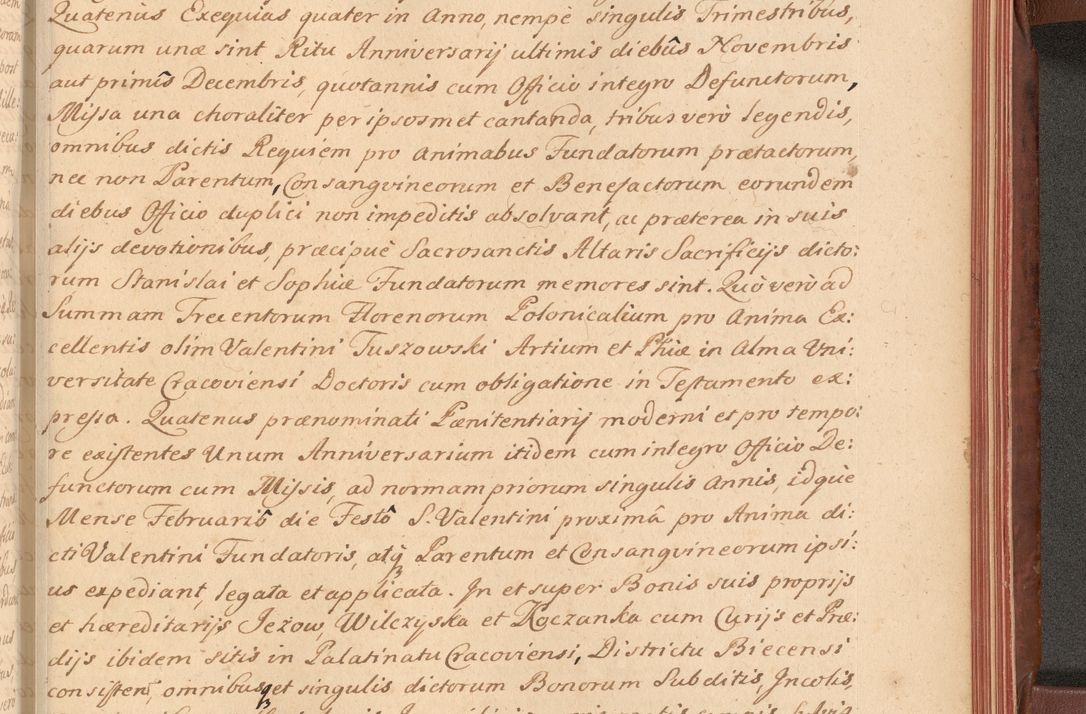 Quatenus Exequias quater in Anno, nempè singulis Trimestribus,
quarum unæ sint Ritu Anniversarij ultimis diebûs Novembris
aut primîs Decembris, quotannis cum Officio integro Defunctorum,
Missa una choraliter per ipsosmet cantanda, tribus verò legendis,
omnibus dictis Requiem pro Animabus Fundatorum prætactorum,
nec non Parentum, Consangvineorum et Benefactorum eorundem
diebus Officio duplici non impeditis absolvant, ac præterea in suis
alijs devotionibus, præcipuè Sacrosanctis Altaris Sacrificijs dicto:
rum Stanislai et Sophiæ Fundatorum memores sint. Quò verò ad
Summam Trecentorum Florenorum Polonicalium pro Anima Ex:
cellentis olim Valentini Tuszowski Artium et Phiæ in Alma Vni:
versitate Cracoviensi Doctoris cum obligatione in Testamento ex:
pressa. Quatenus prænominati Pœnitentiarij moderni et pro tempo:
re existentes Unum Anniversarium itidem cum integro Officio De:
functorum cum Missis, ad normam priorum singulis Annis, idquè
Mense Februariô die Festô S. Valentini proximâ pro Anima di:
cti Valentini Fundatoris, atq3 Parentum et Consangvineorum ipsi:
us expediant, legata et applicata. In et super Bonis suis proprijs
et hæreditarijs Jeżow, Wilczyska et Koczanka cum Curijs et Præ:
dijs ibidem sitis in Palatinatu Cracoviensi, Districtu Biecensi
consisten̄, omnibusq3 et singulis dictorum Bonorum Subditis, Incolis,